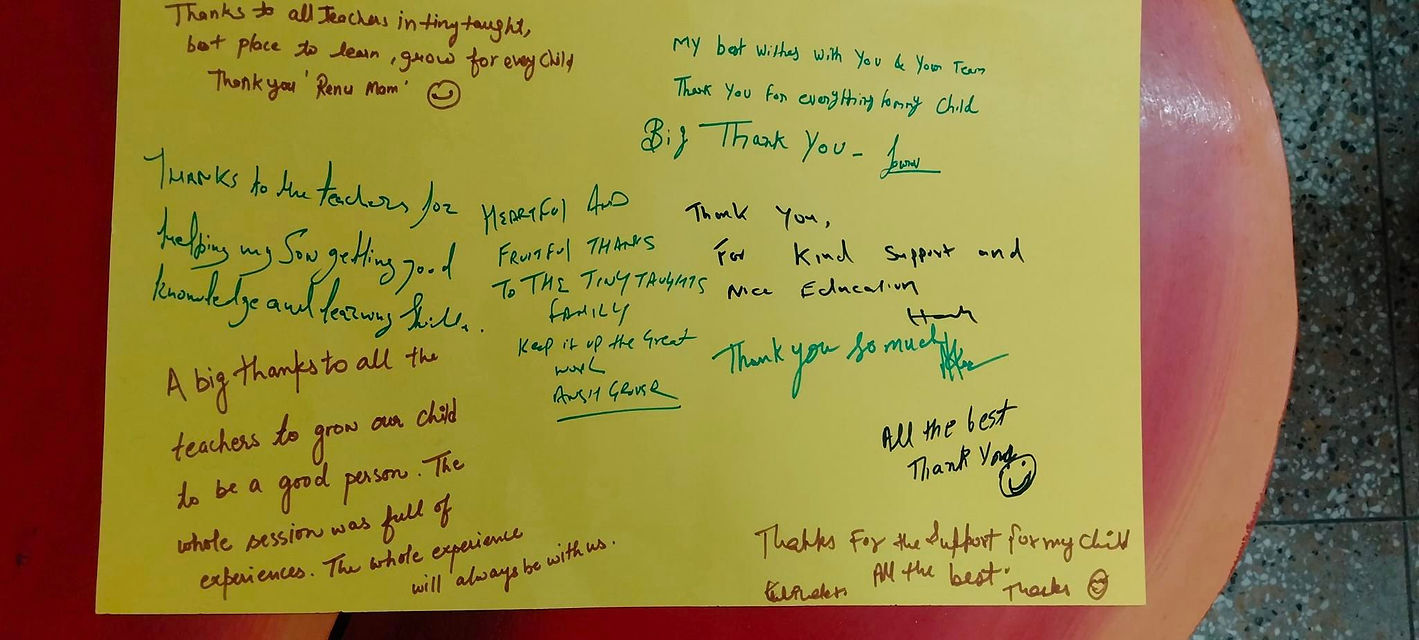 Thanks to all Teachers in tiny taught,
best place to learn, grow for every child
Thank you 'Renu Mam'
My best wishes with You & Your Team
Thank You For everything for my child
Big Thank You -
THANKS to the teachers for
helping my Son getting good
knowledge and learning skills.
HEARTFUL AND
FRUITFUL THANKS
TO THE TINY TAUGHTS
FAMILY
Keep it up the Great
work
ANSH GROVER
Thank You,
For Kind Support and
Nice Education
Thank you so much
A big thanks to all the
teachers to grow our child
to be a good person. The
whole session was full of
experiences. The whole experience
will always be with us.
All the best
Thank You
Thanks For the Support for my child
All the best.
Thanks